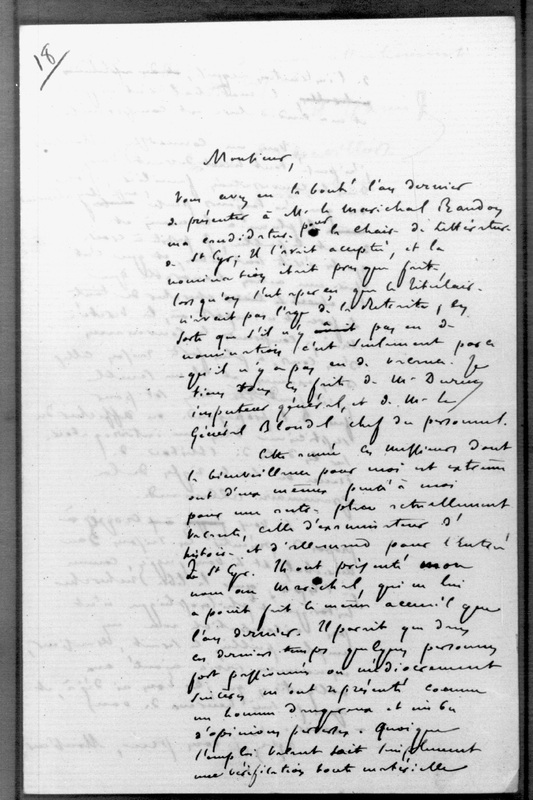 18
Monsieur,
Vous avez eu la bonté l'an dernier
de présenter à Mr le Maréchal Randon
ma candidature pour la chaire de littérature
de St Cyr, Il l'avait acceptée, et la
nomination était presque faite
lorsqu'on s'est aperçu que le titulaire
n'avait pas l'âge de la retraite, en
sorte que s'il n'y avait pas eu de
nomination, c'est seulement parce
qu'il n'y a pas eu de vacance. Je
tiens tous ces faits de Mr Duruy
inspecteur général, et de Mr le
Général Blondel chef du personnel.
Cette année, ces messieurs dont
la bienveillance pour moi est extrême
ont d'eux mêmes pensé à moi
pour une autre place actuellement
vacante, celle d'examinateur d'
histoire et d'allemand pour l'entrée
de St Cyr. Ils ont présenté mon
nom au Maréchal, qui ne lui
a point fait le même accueil que
l'an dernier. Il parait que dans
ces derniers temps quelques personnes
fort passionnées ou médiocrement
sincères m'ont représenté comme
un homme dangereux et imbu
d'opinions perverses. Quoique
l'emploi vacant soit simplement
une vérification toute matérielle